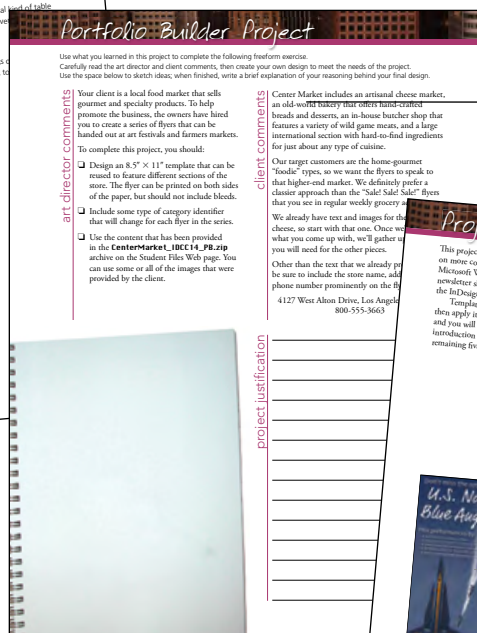 al kind of table
Portfolio Builder Project
Use what you learned in this project to complete the following freeform exercise.
Carefully read the art director and client comments, then create your own design to meet the needs of the project.
Use the space below to sketch ideas; when finished, write a brief explanation of your reasoning behind your final design.
art director comments
Your client is a local food market that sells
gourmet and specialty products. To help
promote the business, the owners have hired
you to create a series of flyers that can be
handed out at art festivals and farmers markets.
To complete this project, you should:
❑ Design an 8.5″ × 11″ template that can be
reused to feature different sections of the
store. The flyer can be printed on both sides
of the paper, but should not include bleeds.
❑ Include some type of category identifier
that will change for each flyer in the series.
❑ Use the content that has been provided
in the CenterMarket_IDCC14_PB.zip
archive on the Student Files Web page. You
can use some or all of the images that were
provided by the client.
client comments
Center Market includes an artisanal cheese market,
an old-world bakery that offers hand-crafted
breads and desserts, an in-house butcher shop that
features a variety of wild game meats, and a large
international section with hard-to-find ingredients
for just about any type of cuisine.
Our target customers are the home-gourmet
“foodie” types, so we want the flyers to speak to
that higher-end market. We definitely prefer a
classier approach than the “Sale! Sale! Sale!” flyers
that you see in regular weekly grocery
We already have text and images for the
cheese, so start with that one. Once we
what you come up with, we’ll gather
you will need for the other pieces.
Other than the text that we already
be sure to include the store name,
phone number prominently on the
4127 West Alton Drive, Los Angele
800-555-3663
project justification
This projec
on more co
Microsoft
newsletter
the InDesig
Templa
then apply it
and you will
introduction
remaining fiv
U.S. Na
Blue Ang